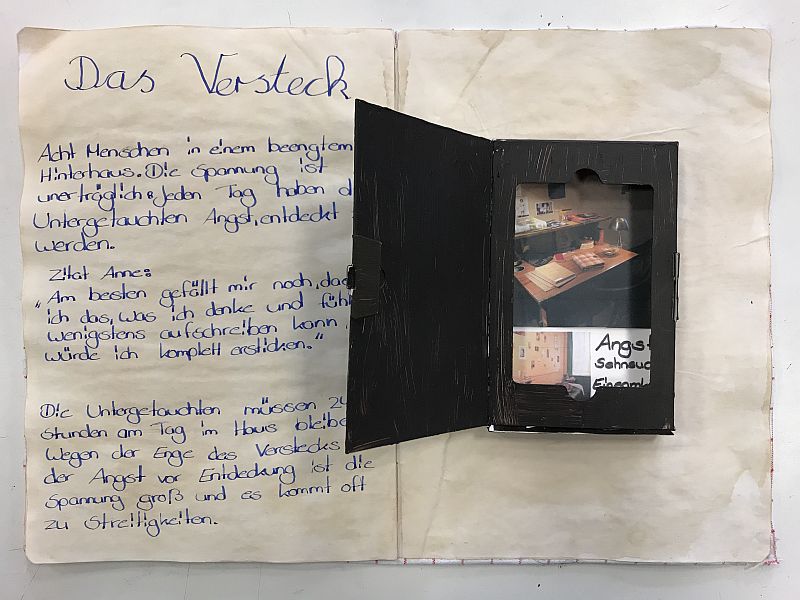 Das Versteck
Acht Menschen in einem beengtem
Hinterhaus. Die Spannung ist
unerträglich. Jeden Tag haben d
Untergetauchten Angst, entdeckt
werden.
Zitat Anne:
„Am besten gefällt mir noch, das
ich das, was ich denke und fühl
wenigstens aufschreiben kann,
würde ich komplett ersticken.“
Die Untergetauchten müssen 24
Stunden am Tag im Haus bleibe
Wegen der Enge des Verstecks
der Angst vor Entdeckung ist die
Spannung groß und es kommt oft
zu Streitigkeiten.
Angst
Sehnsuc